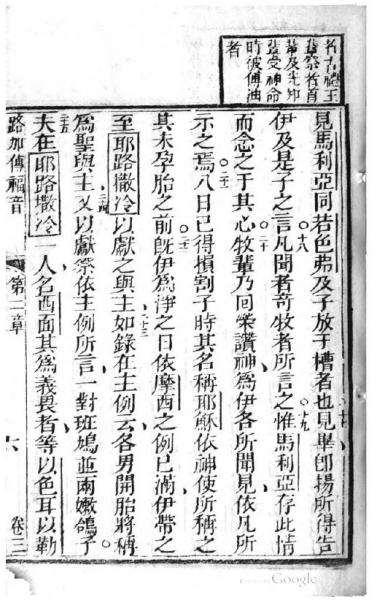 名古禮王
輩祭者首
輩及先知
輩受神命
時被傅油
者
見馬利亞同若色弗及子放于槽者也見畢卽揚所得告
伊及是子之言凡聞者奇牧者所言之惟馬利亞存此情
而念之于其心牧輩乃回榮讚神爲伊各所聞見依凡所
示之焉八日已得損割子時其名稱耶穌依神使所稱之
其未孕胎之前旣伊爲淨之日依摩西之例已滿伊帶之
至耶路撒冷以獻之與主如錄在主例云各男開胎將稱
爲聖與主又以獻祭依主例所言一對班鳩並兩嫩鴿子
夫在耶路撒冷一人名西面其爲義畏者等以色耳以勒
路加傅福音 第二章 六 卷三
十七
十八
十九
二十
二十一
二十二
二十三
二十四
二十五
Google